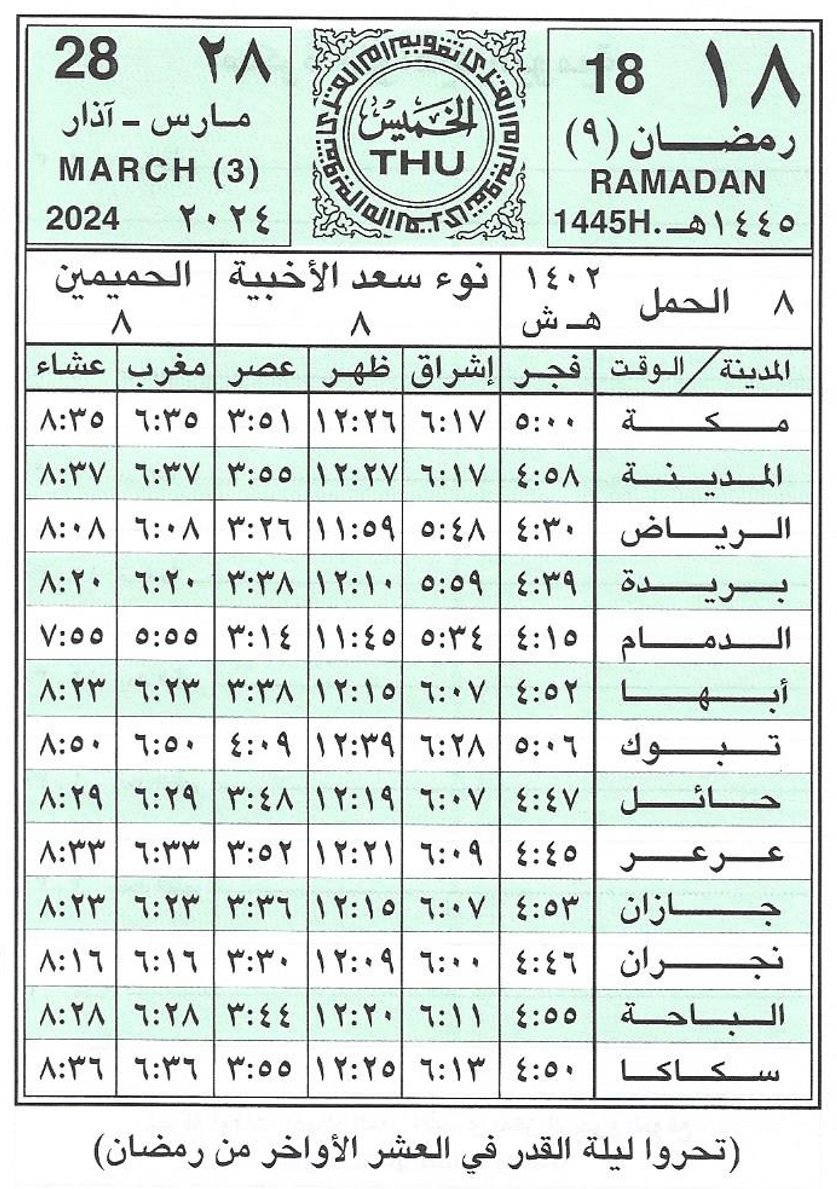 ١٨ 18
رمضان (٩)
RAMADAN
١٤٤٥هـ 1445H.
تقويم أم القرى
الخميس
THU
28 ٢٨
مارس - آذار
MARCH (3)
2024 ٢٠٢٤
٨ الحمل ١٤٠٢ هـ ش
نوء سعد الأخبية ٨
الحميمين ٨
المدينة / الوقت فجر إشراق ظهر عصر مغرب عشاء
مكة ٥:٠٠ ٦:١٧ ١٢:٢٦ ٣:٥١ ٦:٣٥ ٨:٣٥
المدينة ٤:٥٨ ٦:١٧ ١٢:٢٧ ٣:٥٥ ٦:٣٧ ٨:٣٧
الرياض ٤:٣٠ ٥:٤٨ ١١:٥٩ ٣:٢٦ ٦:٠٨ ٨:٠٨
بريدة ٤:٣٩ ٥:٥٩ ١٢:١٠ ٣:٣٨ ٦:٢٠ ٨:٢٠
الدمام ٤:١٥ ٥:٣٤ ١١:٤٥ ٣:١٤ ٥:٥٥ ٧:٥٥
أبها ٤:٥٢ ٦:٠٧ ١٢:١٥ ٣:٣٨ ٦:٢٣ ٨:٢٣
تبوك ٥:٠٦ ٦:٢٨ ١٢:٣٩ ٤:٠٩ ٦:٥٠ ٨:٥٠
حائل ٤:٤٧ ٦:٠٧ ١٢:١٩ ٣:٤٨ ٦:٢٩ ٨:٢٩
عرعر ٤:٤٥ ٦:٠٩ ١٢:٢١ ٣:٥٢ ٦:٣٣ ٨:٣٣
جازان ٤:٥٣ ٦:٠٧ ١٢:١٥ ٣:٣٦ ٦:٢٣ ٨:٢٣
نجران ٤:٤٦ ٦:٠٠ ١٢:٠٩ ٣:٣٠ ٦:١٦ ٨:١٦
الباحة ٤:٥٥ ٦:١١ ١٢:٢٠ ٣:٤٤ ٦:٢٨ ٨:٢٨
سكاكا ٤:٥٠ ٦:١٣ ١٢:٢٥ ٣:٥٥ ٦:٣٦ ٨:٣٦
(تحروا ليلة القدر في العشر الأواخر من رمضان)